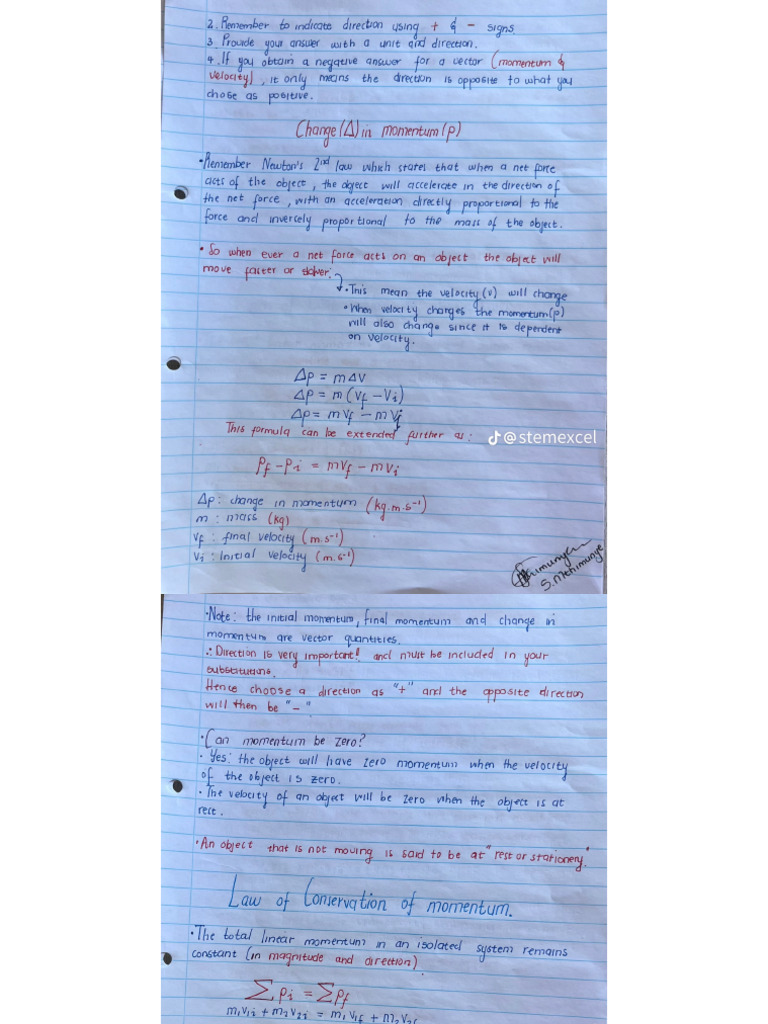 2. Remember to indicate direction using + & - signs.
3. Provide your answer with a unit and direction.
4. If you obtain a negative answer for a vector (momentum &
velocity), it only means the direction is opposite to what you
chose as positive.
Change (Δ) in momentum (p)
• Remember Newton's 2nd law which states that when a net force
acts of the object, the object will accelerate in the direction of
the net force, with an acceleration directly proportional to the
force and inversely proportional to the mass of the object.
• So when ever a net force acts on an object the object will
move faster or slower.
• This mean the velocity (v) will change
• When velocity changes the momentum (p)
will also change since it is dependent
on velocity.
Δp = mΔv
Δp = m (vf - vi)
Δp = mvf - mvi
This formula can be extended further as:
@stemexcel
pf - pi = mvf - mvi
Δp : change in momentum (kg.m.s⁻¹)
m : mass (kg)
vf : final velocity (m.s⁻¹)
vi : Initial velocity (m.s⁻¹)
• Note: the initial momentum, final momentum and change in
momentum are vector quantities.
∴ Direction is very important! and must be included in your
substitutions.
Hence choose a direction as "+" and the opposite direction
will then be "-"
• Can momentum be zero?
• Yes: the object will have zero momentum when the velocity
of the object is zero.
• The velocity of an object will be zero when the object is at
rest.
• An object that is not moving is said to be at "rest or stationery."
Law of Conservation of momentum.
• The total linear momentum in an isolated system remains
constant (in magnitude and direction).
∑pi = ∑pf
m₁v₁i + m₂v₂i = m₁v₁f + m₂v₂f